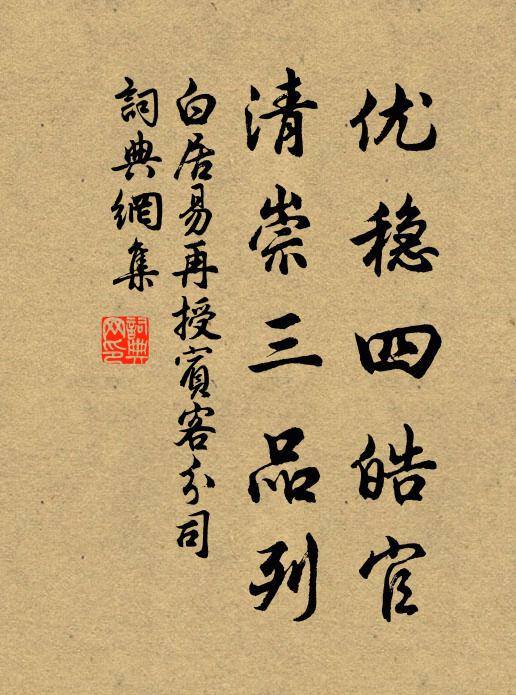 优稳四皓官
清崇三品列
白居易再授賓客分司
詞典網集
詞典网印